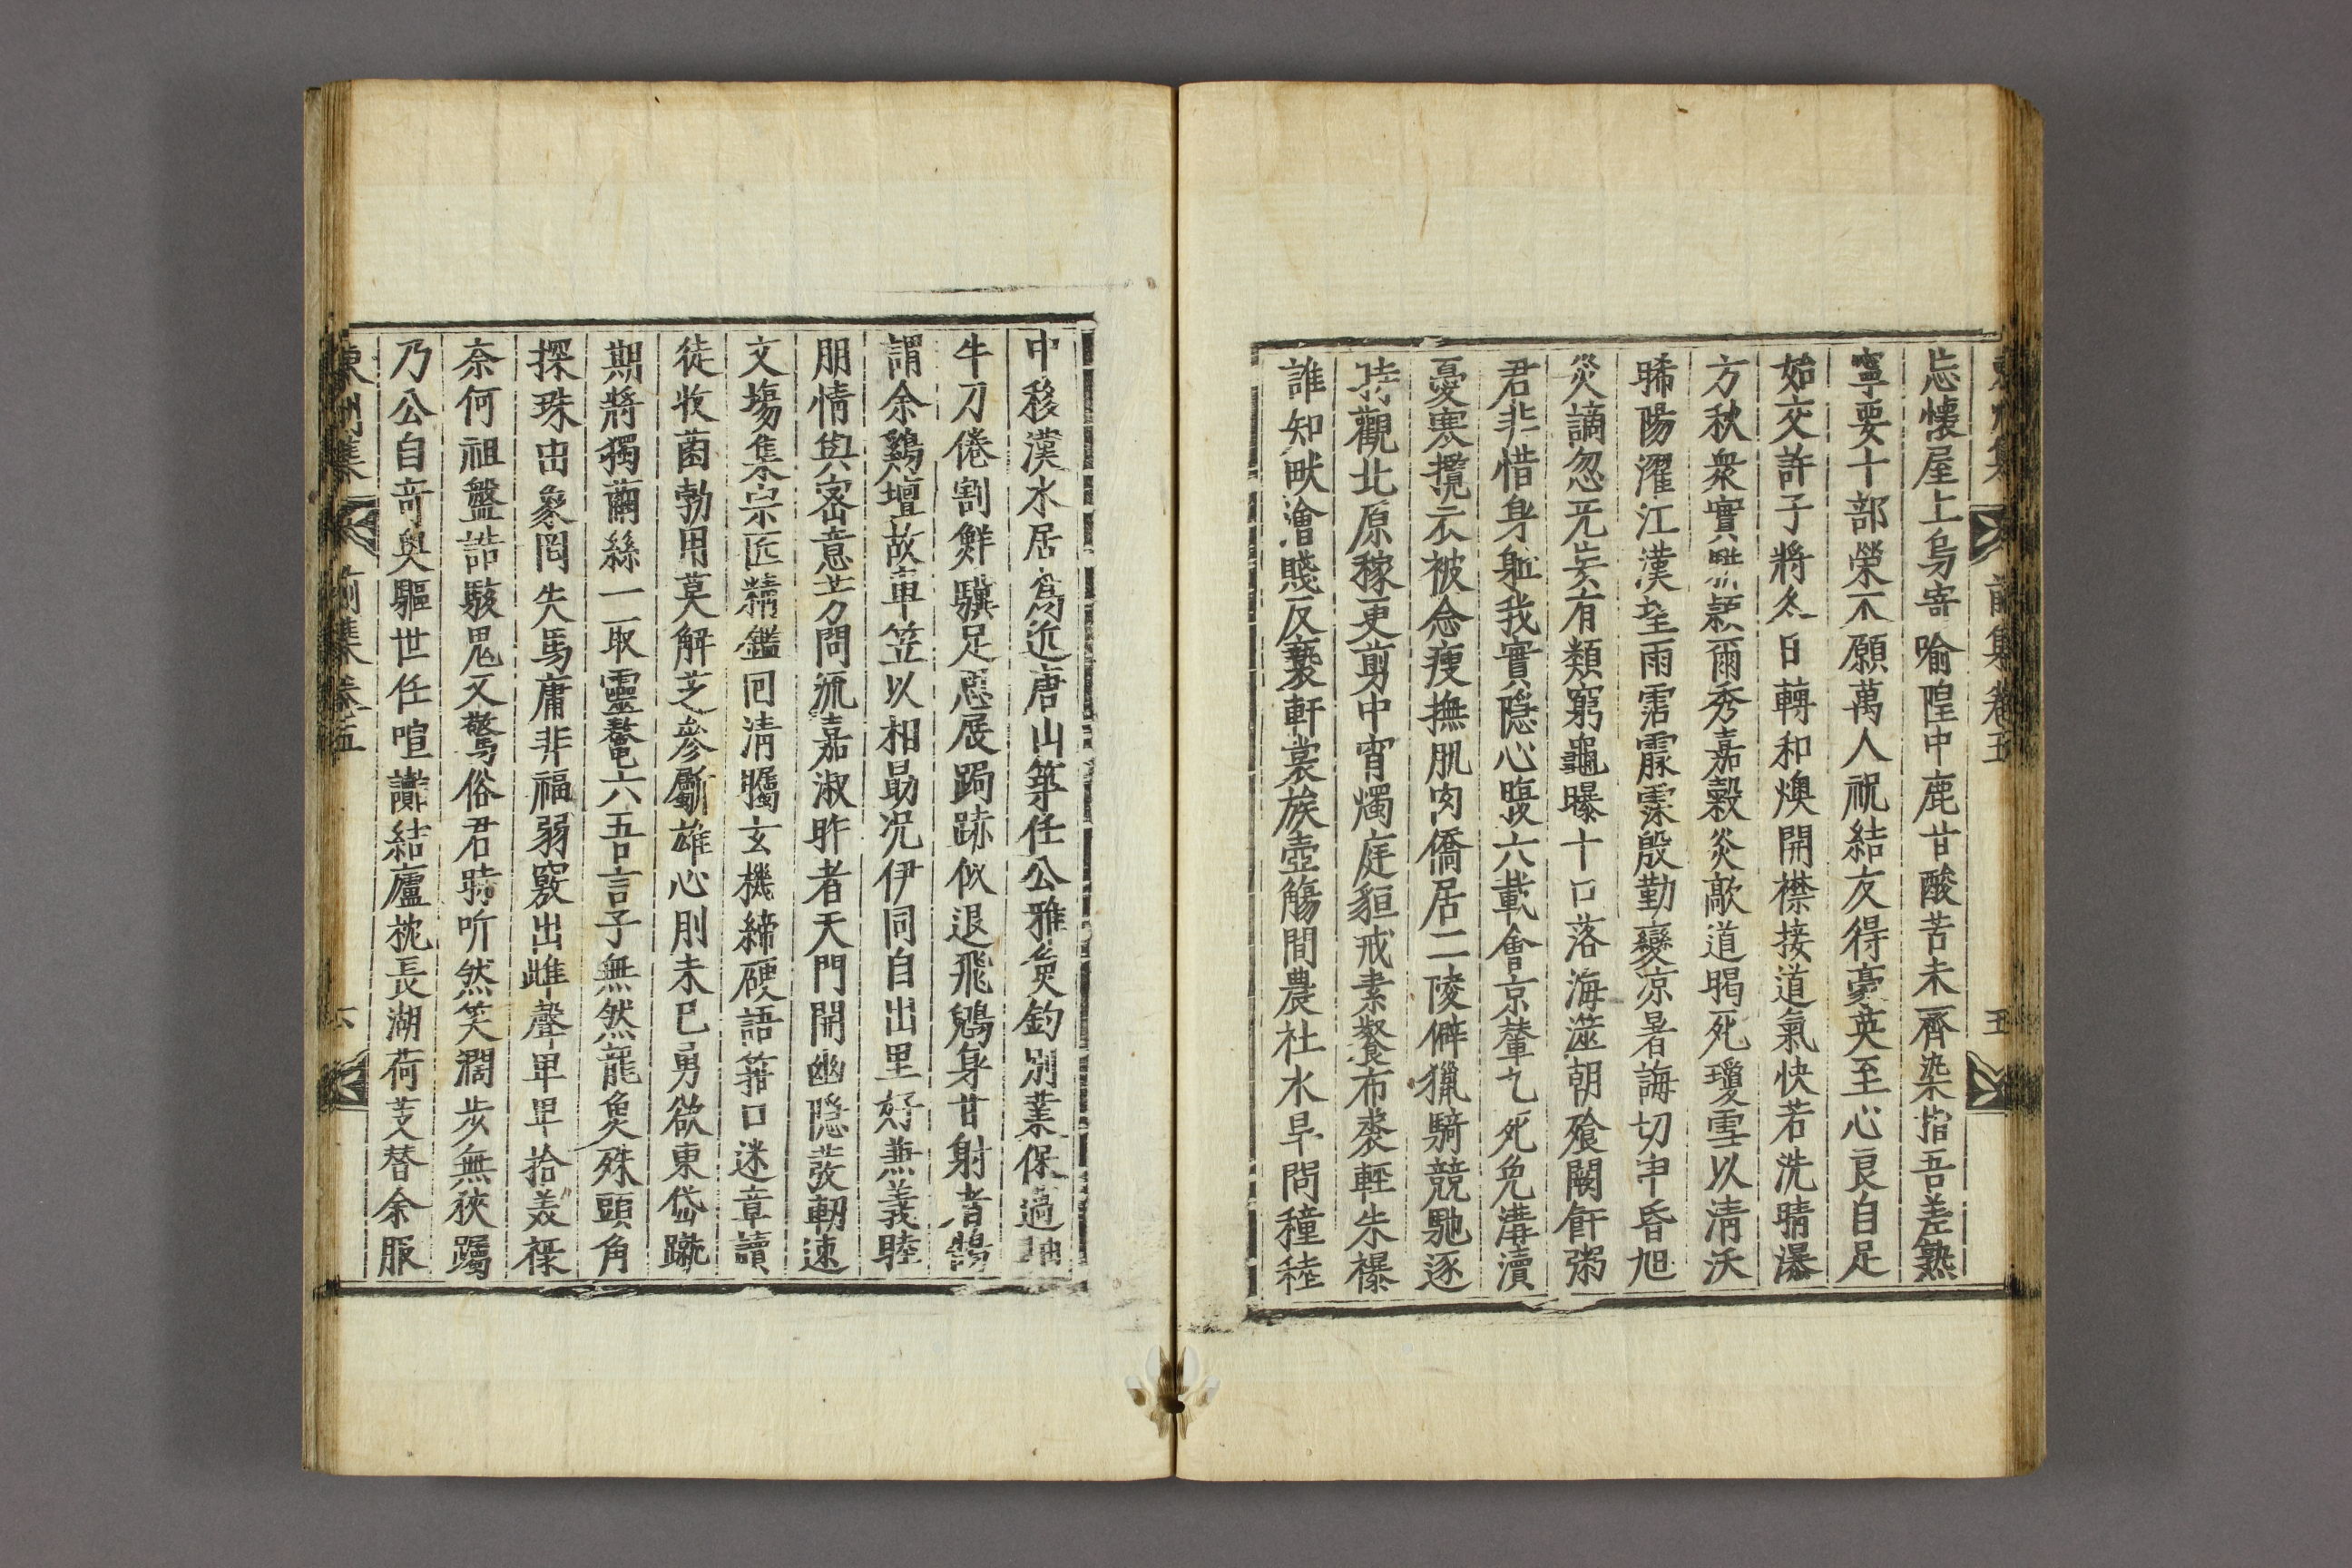 東州集 前集卷五 五
忘懷屋上烏寄喻隍中鹿甘酸苦未齊染指吾差熟
寧要十部榮不願萬人祝結友得豪英至心良自足
始交許子將冬日轉和燠開襟接道氣快若洗晴瀑
方秋衆實 穎爾秀嘉穀炎歊道暍死瓊雪以淸沃
晞陽濯江漢望雨霑霢霂殷勤變凉暑誨切申昏旭
災謫忽无妄有類窮龜曝十口落海滋朝飱闕飦粥
君非惜身軀我實隱心腹六載會京輦乞死免溝瀆
憂寒攬衣被念瘦撫肌肉僑居二陵僻獵騎競馳逐
持觀北原稼更剪中宵燭庭貆戒素餐布裘輕朱襮
誰知畎澮賤反褻軒裳族壺觴間農社水旱問穜稑
中移漢水居爲近唐山築任公雅負釣別業保薖軸
牛刀倦割鮮驥足惡展跼跡似退飛鷁身甘射者鵠
謂余鷄壇故車笠以相勗况伊同自出里好兼義睦
朋情與宻意芳問流嘉淑昨者天門開幽隱發軔速
文塲集宗匠精鑑回淸矚玄機締硬語箝口迷章讀
徒收菌勃用莫解芝參斸雄心刖未已勇欲東岱蹴
期將獨繭絲一取靈鼇六吾言子無然龍魚殊頭角
探珠出象罔失馬庸非福弱竅出雌聲卑卑拾美祿
奈何祖盤誥駭鬼又驚俗君時听然笑濶步無狹躅
乃公自奇奧驅世任喧讟結廬枕長湖荷芰替余服
東州集 前集卷五 六